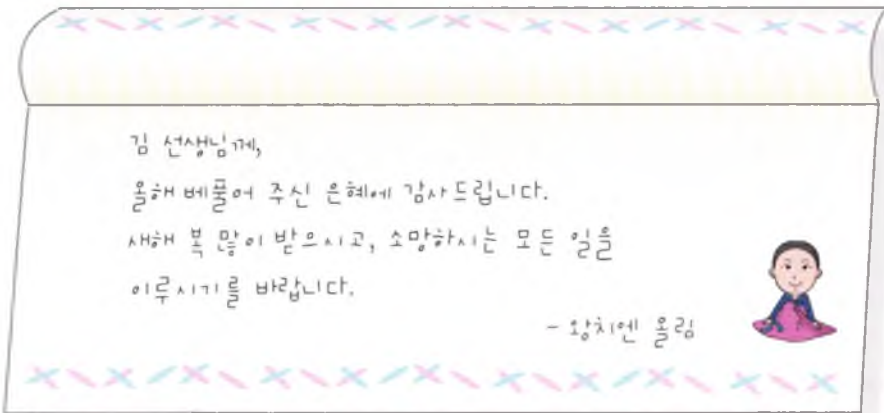 김 선생님께,
올해 베풀어 주신 은혜에 감사드립니다.
새해 복 많이 받으시고, 소망하시는 모든 일을
이루시기를 바랍니다.
- 왕치엔 올림